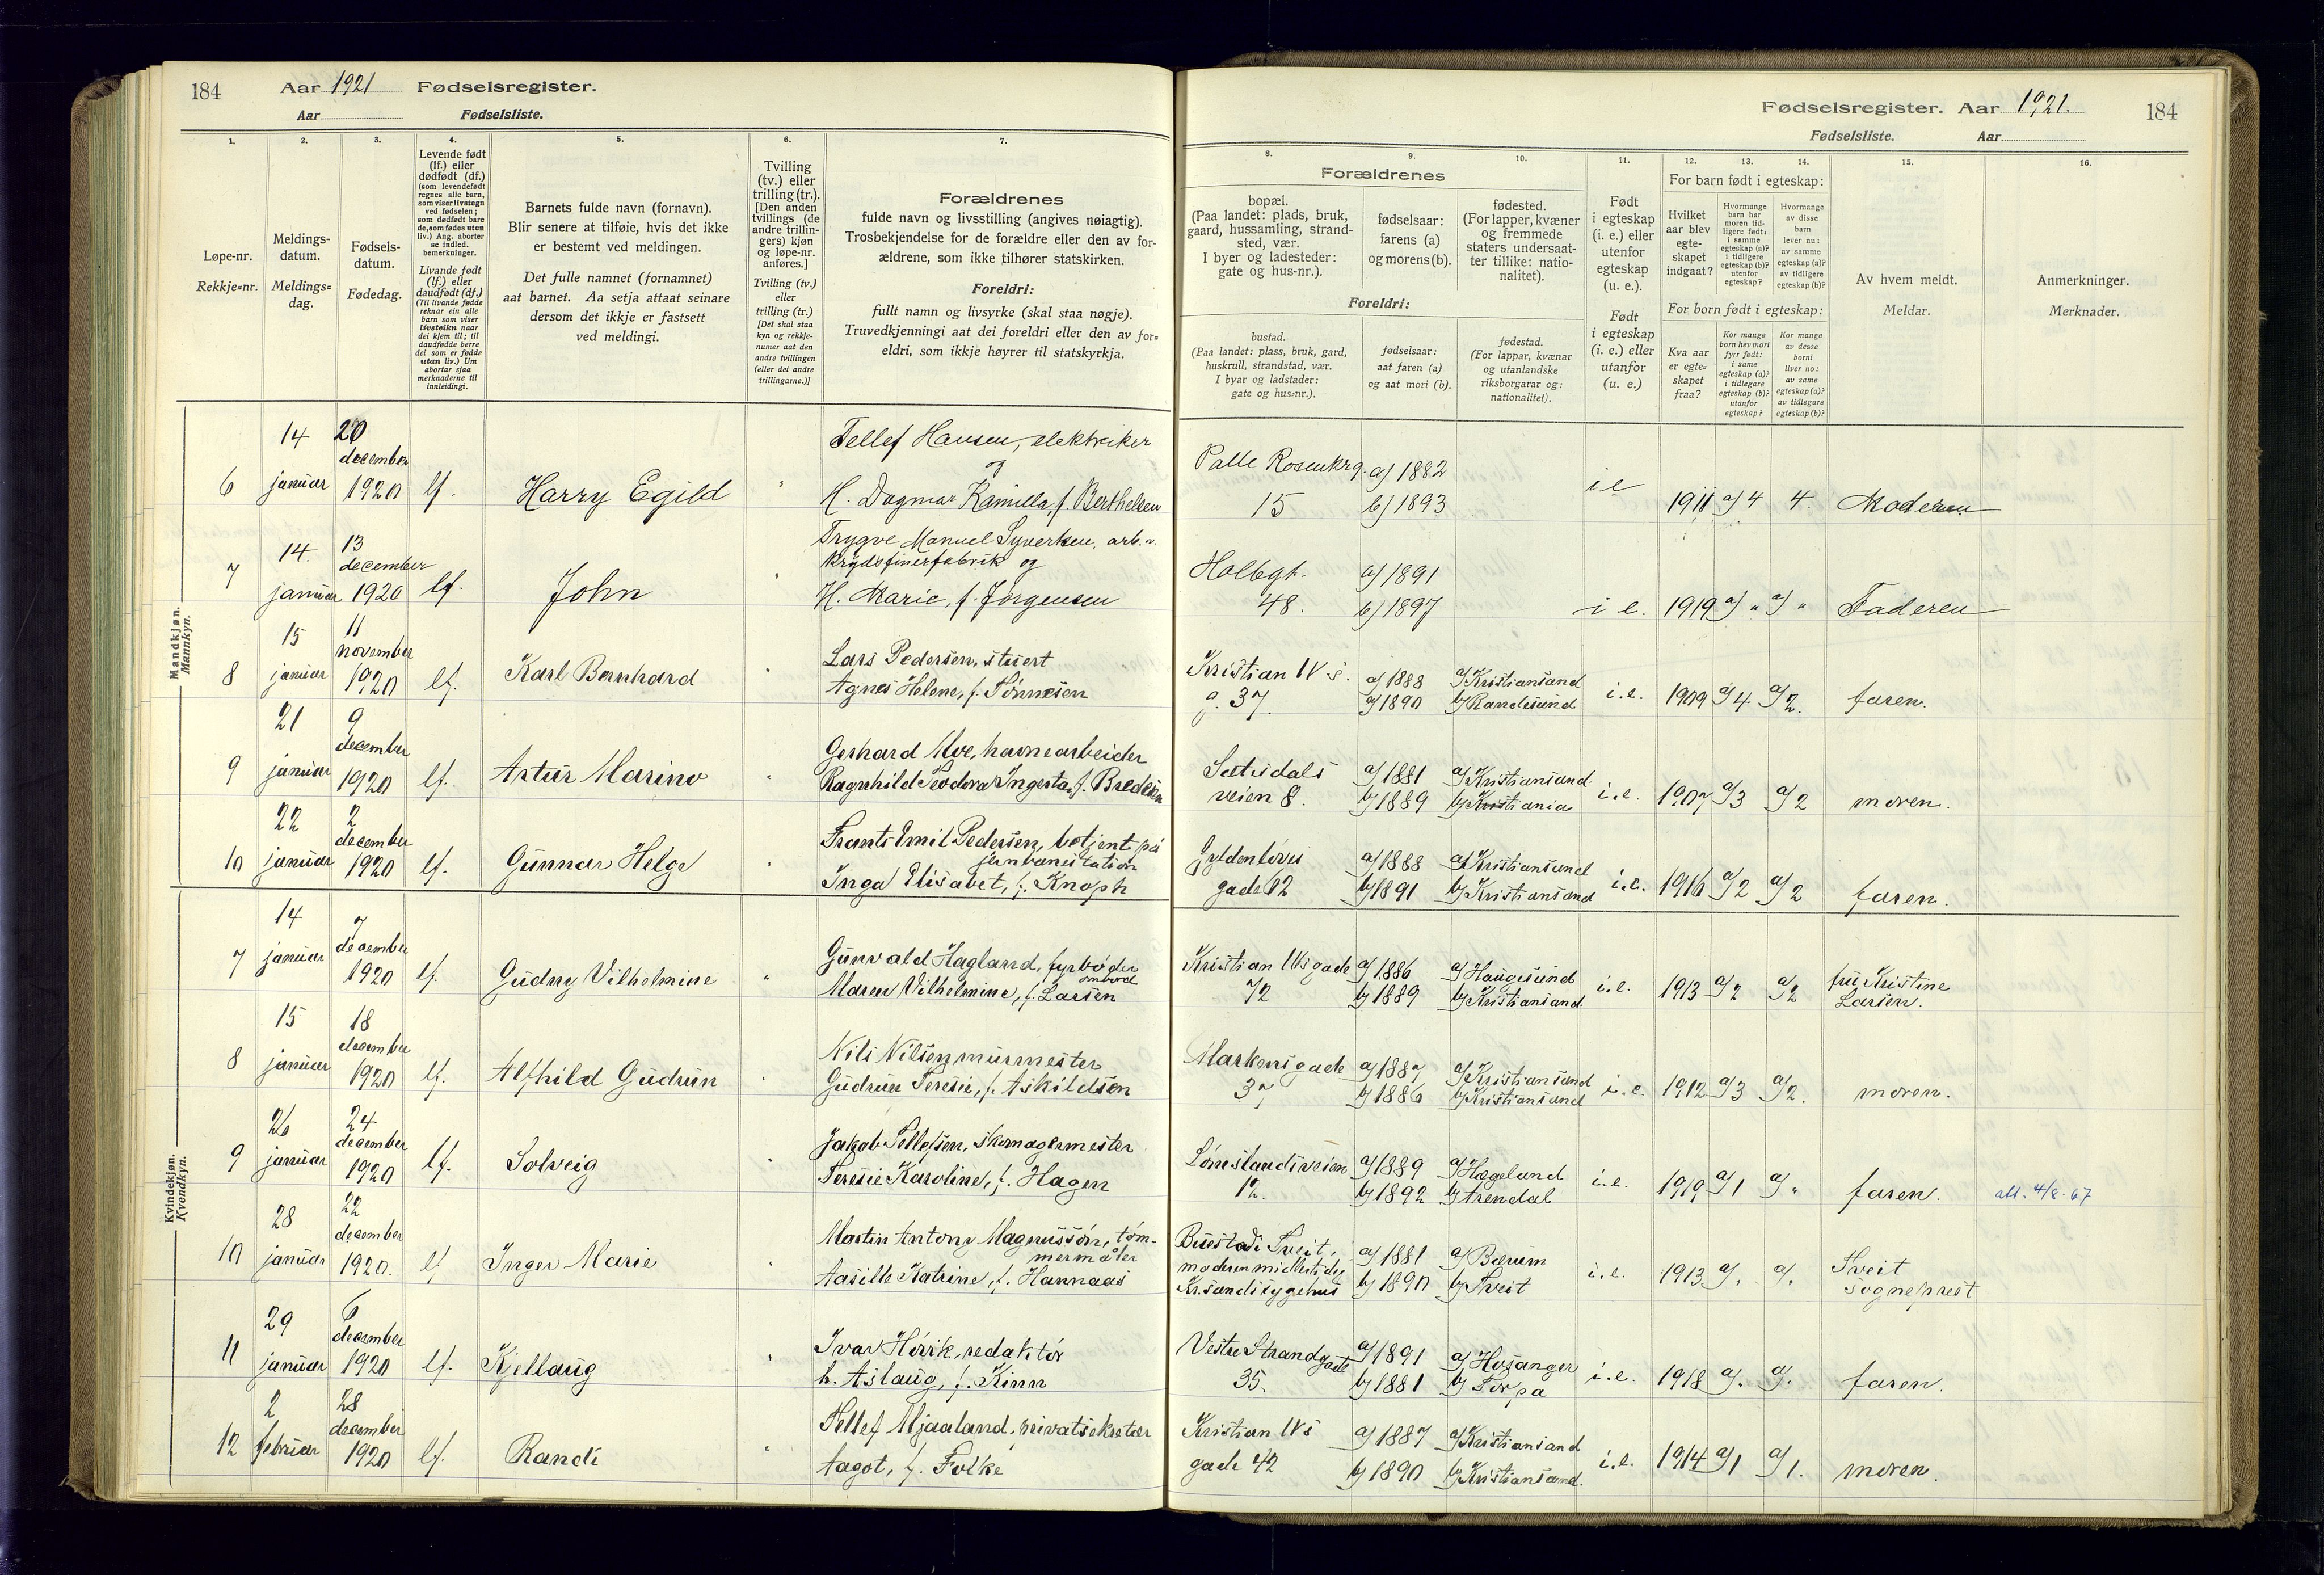 184 Aar 1921 Fødselsregister.
Aar Fødselsliste.
1. 2. 3. 4. 5. 6. 7.
Løpe-nr.
Rekkje-nr.
Meldings-
datum.
Meldings-
dag.
Fødsels-
datum.
Fødedag.
Levende født
(lf.) eller
dødfødt (df.)
(som levendefødt
regnes alle barn,
som viser livstegn
ved fødselen;
som dødfødt bare
de, som fødes uten
liv.) Ang. aborter
se indled.
bemerkninger.
Livande født
(lf.) eller
daudfødt (df.)
(Til livande fødde
reknar ein alle
barn som viser
livsteikn naar
dei kjem til; til
daudfødde berre
dei som er fødde
utan liv.) Um
abortar sjaa
merknaderne til
innleidingi.
Barnets fulde navn (fornavn).
Blir senere at tilføie, hvis det ikke
er bestemt ved meldingen.
Det fulle namnet (fornamnet)
aat barnet. Aa setja attaat seinare
dersom det ikkje er fastsett
ved meldingi.
Tvilling
(tv.) eller
trilling (tr.).
[Den anden
tvillings (de
andre trillin-
gers) kjøn
og løpe-nr.
anføres.]
Tvilling (tv.)
eller
trilling (tr.)
[Det skal staa
kyn og rekkje-
numer aat den
andre tvillingen
(eller dei andre
trillingarne.)]
Forældrenes
fulde navn og livsstilling (angives nøiagtig).
Trosbekjendelse for de forældre eller den av for-
ældrene, som ikke tilhører statskirken.
Foreldri:
fullt namn og livsyrke (skal staa nøgje).
Truvedkjenningi aat dei foreldri eller den av for-
eldri, som ikkje høyrer til statskyrkja.
Mandkjøn.
Mannkyn.
6 14 januar 20 december 1920 lf. Harry Egild " Tellef Hansen, elektriker
og
H. Dagmar Kamilla, f. Berthelsen
7 14. januar 13 december 1920 lf. John " Trygve Manuel Syvertsen, arb. v.
Krydsfinerfabrik og
H. Marie, f. Jørgensen
8 15 januar 11 november 1920 lf. Karl Bernhard " Lars Pedersen, stuert
Agnes Helene, f. Tønnesen
9 21 januar 9 december 1920 lf. Artur Marino " Gerhard Moe, havnearbeider
Ragnhild Teodora Ingesta, f. Bredesen
10 22 januar 2 december 1920 lf. Gunnar Helge " Frants Emil Pedersen, betjent på
jernbanestation
Inga Elisabet, f. Knoph
Kvindekjøn.
Kvendkyn.
7 14 januar 7 december 1920 lf. Gudny Vilhelmine " Gunvald Hagland, fyrbøder
ombord
Maren Vilhelmine, f. Larsen
8 15 januar 18 december 1920 lf. Alfhild Gudrun " Nils Nilsen murmester
Gudrun Teresie, f. Askildsen
9 26 januar 24 december 1920 lf. Solveig " Jakob Tellefsen, skomagermester
Teresie Karoline, f. Hagen
10 28 januar 22 december 1920. lf Inger Marie Martin Antony Magnussøn, tøm-
mermåler
Aasille Katrine, f. Hannaas
11 29 januar 6 december 1920 lf. Kjellaug " Ivar Hörik, redaktör
h. Aslaug, f. Kinn
12 2 februar 28 december 1920 lf. Randi " Tellef Mjaaland, privatsekretær
Aagot, f. Folke
Fødselsregister. Aar 1921. 184
Fødselsliste. Aar
8. 9. 10. 11. 12. 13. 14. 15. 16.
Forældrenes
bopæl.
(Paa landet: plads, bruk,
gaard, hussamling, strand-
sted, vær.
I byer og ladesteder:
gate og hus-nr.).
fødselsaar:
farens (a)
og morens (b).
fødested.
(For lapper, kvæner
og fremmede
staters undersaat-
ter tillike: natio-
nalitet).
Foreldri:
bustad.
(Paa landet: plass, bruk, gard,
huskrull, strandstad, vær.
I byar og ladstader:
gate og hus-nr.).
fødselsaar:
aat faren (a)
og aat mori (b).
fødestad.
(For lappar, kvænar
og utanlandske
riksborgarar og:
nationalitet).
Født
i egteskap
(i. e.) eller
utenfor
egteskap
(u. e.).
Født
i egteskap
(i. e.) eller
utanfor
(u. e.)
For barn født i egteskap:
Hvilket
aar blev
egte-
skapet
indgaat?
Hvormange
barn har
moren tid-
ligere født:
i samme
egteskap (a)?
i tidligere
egteskap (b)?
utenfor
egteskap?
Hvormange
av disse
barn
lever nu:
av samme
egteskap (a)?
av tidligere
egteskap (b)?
For born født i egteskap:
Kva aar
er egte-
skapet
fraa?
Kor mange
born hev mori
fyrr født:
i same
egteskap (a)?
i tidlegare
egteskap (b)?
utanfor
egteskap?
Kor mange
av desse
borni
liver no:
av same
egteskap (a)?
av tidlegare
egteskap (b)?
Av hvem meldt.
Meldar.
Anmerkninger.
Merknader.
Palle Rosenkrg. a) 1882
15 b) 1893 i e 1911 a) 4 4. Moderen
Holbgt. a) 1891
48. b) 1897 i e. 1919 a) " a) " Faderen
Kristian IV s. a) 1888 a) Kristiansand
g. 37. b) 1890 b) Randesund i.e. 1909 a) 4 a) 2. faren.
Setesdals a) 1881 a) Kristiansand
veien 8. b) 1889 b) Kristiania i.e. 1907 a) 3 a) 2 moren.
Gyldenløves a) 1888 a) Kristiansand
gade 12 b) 1891 b) Kristiansand i.e. 1916 a) 2 a) 2 faren.
Kristian IVs gade a) 1886 a) Haugesund
72 b) 1889 b) Kristiansand i.e. 1913 a) 2 a) 2 fru Kristine
Larsen.
Markens gade a) 1887 a) Kristiansand
37 b) 1886 b) Kristiansand i.e. 1912 a) 3 a) 2. moren.
Lømslandsveien a) 1889 a) Hægeland
12. b) 1892 b) Arendal i.e. 1919 a) 1 a) " faren. att. 4/8.67
Buestad i Tveit, a) 1881 a) Bærum
moderen midlertidig
Kr.sands sygehus b) 1890 b) Tveit i.e. 1913 a) . a) . Tveit
sogneprest
Vestre Strandgade a) 1891 a) Hosanger
35. b) 1881 b) Torpa i.e. 1918 a) . a) . faren.
Kristian IVs a) 1887 a) Kristiansand
gade 42 b) 1890 b) Kristiansand. i.e. 1914 a) 1 a) 1. moren.